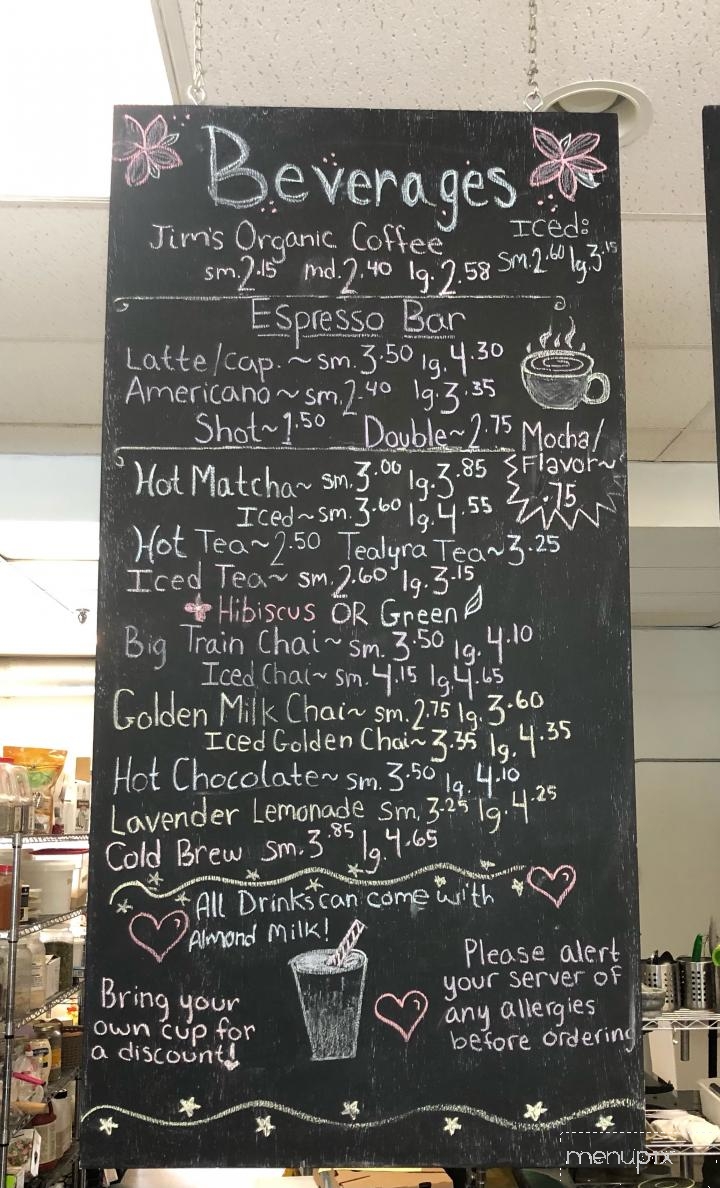 Beverages
Jim's Organic Coffee
sm.2.15 md.2.40 lg.2.58
Iced:
sm.2.60 lg.3.15
Espresso Bar
Latte/cap. ~ sm.3.50 lg.4.30
Americano ~ sm.2.40 lg.3.35
Shot~1.50 Double~2.75
Mocha/
Flavor~
.75
Hot Matcha~ sm.3.00 lg.3.85
Iced~sm.3.60 lg.4.55
Hot Tea~2.50 Tealyra Tea~3.25
Iced Tea~ sm.2.60 lg.3.15
Hibiscus OR Green
Big Train Chai~ sm.3.50 lg.4.10
Iced Chai~ sm.4.15 lg.4.65
Golden Milk Chai~ sm.2.75 lg.3.60
Iced Golden Chai~3.35 lg.4.35
Hot Chocolate~ sm.3.50 lg.4.10
Lavender Lemonade sm.3.25 lg.4.25
Cold Brew sm.3.85 lg.4.65
All Drinks can come with
Almond Milk!
Bring your
own cup for
a discount!
Please alert
your server of
any allergies
before ordering
menupix